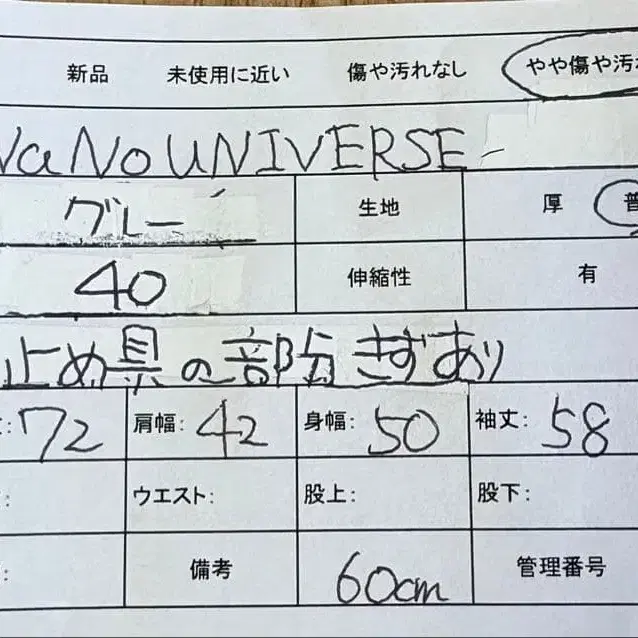 新品 未使用に近い 傷や汚れなし やや傷や汚れ
NaNo UNIVERSE
グレー 生地 厚 普
40 伸縮性 有
止め具の部分きずあり
: 72 肩幅: 42 身幅: 50 袖丈: 58
: ウエスト: 股上: 股下:
: 備考 60cm 管理番号